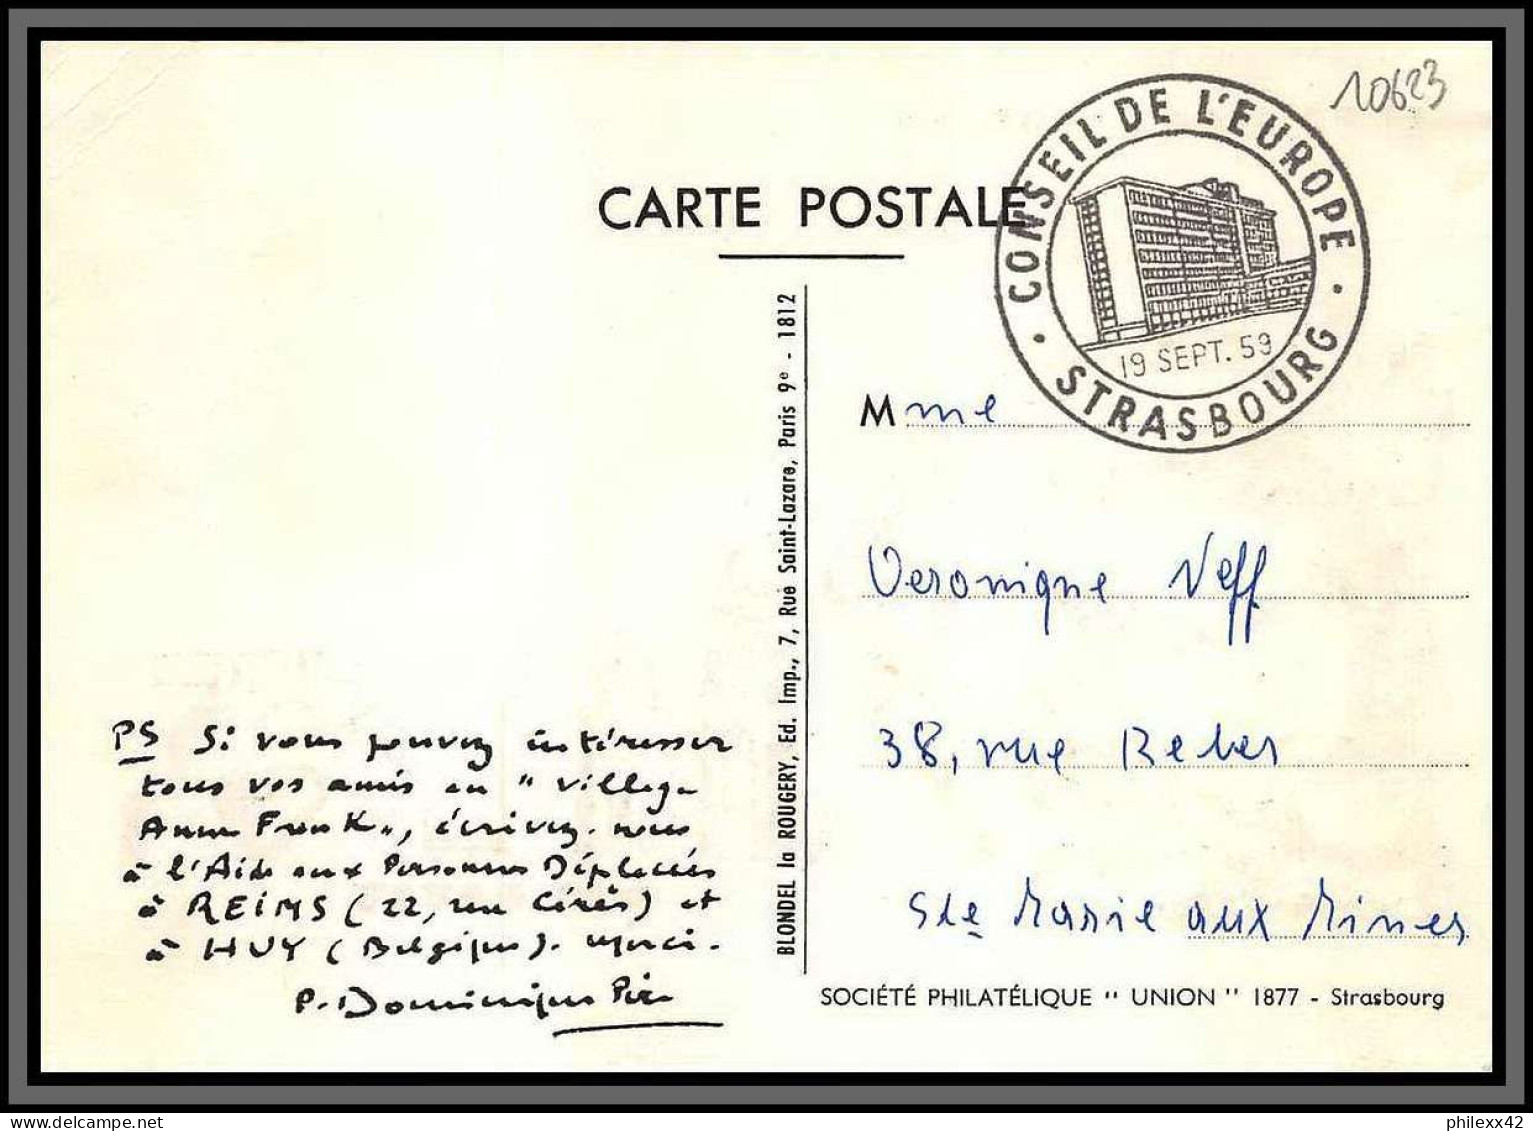 10623
CONSEIL DE L'EUROPE
· STRASBOURG ·
19 SEPT. 59
CARTE POSTALE
BLONDEL la ROUGERY, Ed. Imp., 7, Rue Saint-Lazare, Paris 9e - 1812
Mme
Veronique Neff
38, rue Reber
Ste Marie aux Mines
PS Si vous pouvez intéresser
tous vos amis au "Village
Anne Frank", écrivez-nous
à l'Aide aux Personnes Déplacées
à REIMS (22, rue Cérès) et
à HUY (Belgique). merci.
P. Dominique Pire
SOCIÉTÉ PHILATÉLIQUE " UNION " 1877 - Strasbourg
philexx42